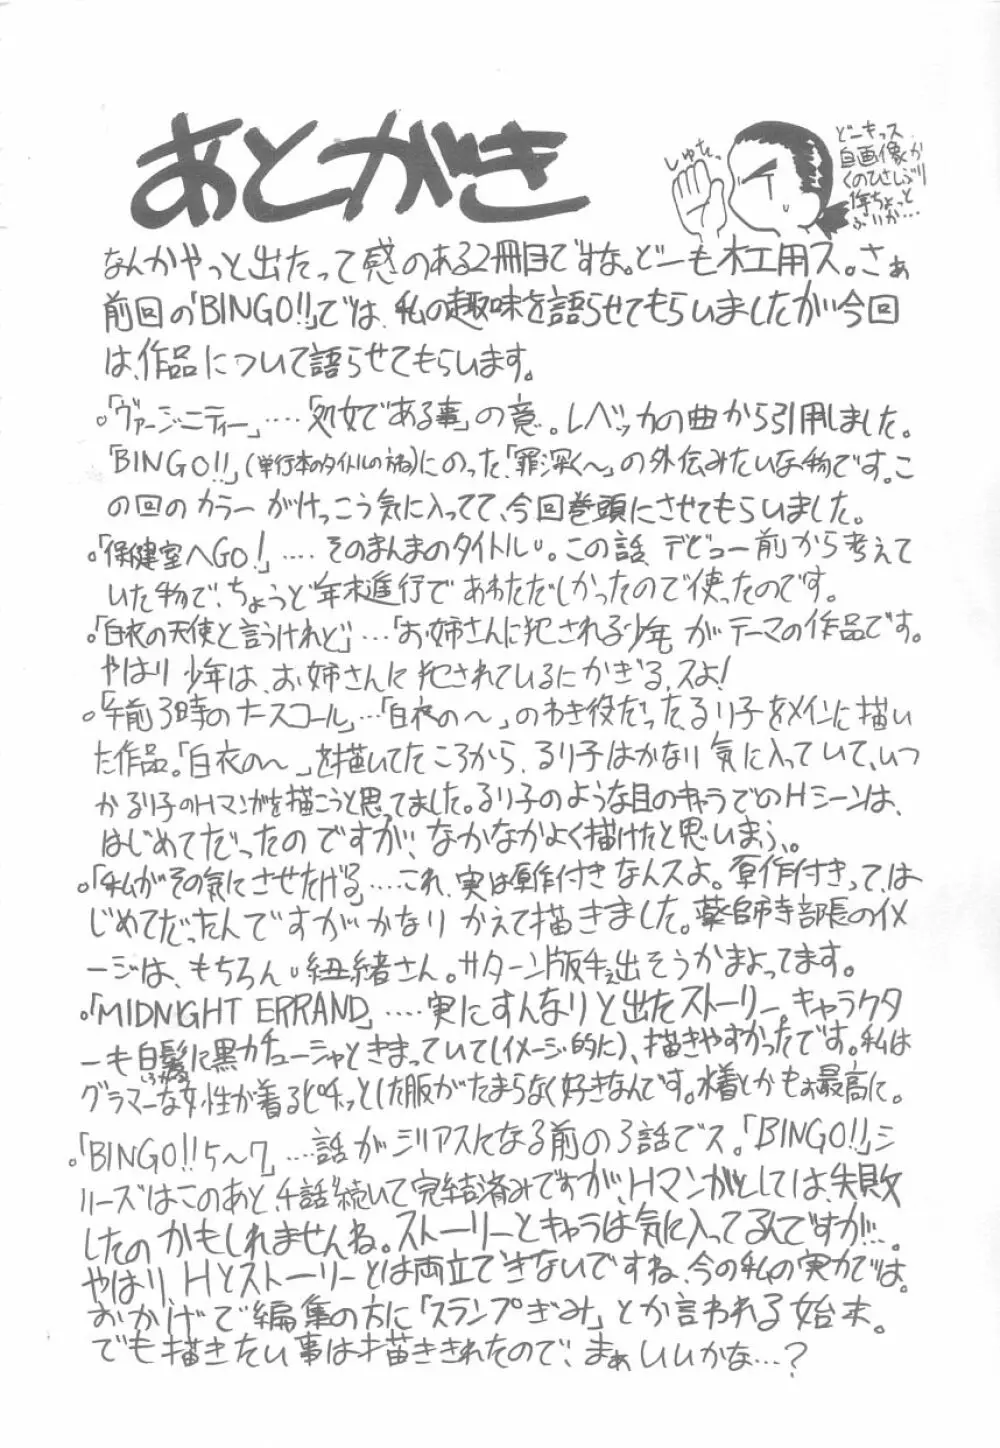 あとがき
しゅたっ
どーもっス
自画像か
くのひさしぶり
なんかやっと出たって感のある2冊目ですな。どーも木工用ス。さぁ
前回の「BINGO!!」では、私の趣味を語らせてもらいましたが今回
は、作品について語らせてもらいます。
。「ヴァージニティー」‥‥「処女である事」の意。レベッカの曲から引用しました。
「BINGO!!」(単行本のタイトルの方ね)にのった「罪深く～」の外伝みたいな物です。こ
の回のカラーがけっこう気に入ってて、今回巻頭にさせてもらいました。
。「保健室へGO!」‥‥そのまんまのタイトル。この話、デビュー前から考えて
いた物で、ちょうど年末進行であわただしかったので使ったのです。
。「白衣の天使と言うけれど」…「お姉さんに犯される少年」がテーマの作品です。
やはり少年は、お姉さんに犯されているにかぎる、スよ!
。「午前3時のナースコール」…「白衣の～」のわき役だった、るり子をメインに描い
た作品。「白衣の～」を描いてたころから、るり子はかなり気に入っていて、いつ
かるり子のHマンガを描こうと思ってました。るり子のような目のキャラでのHシーンは、
はじめてだったのですが、なかなかよく描けたと思いまう。
。「私がその気にさせたげる」‥‥これ、実は原作付きなんスよ。原作付きっては
じめてだったんですがかなりかえて描きました。薬師寺部長のイメ
ージは、もちろん紐緒さん。サターン版手え出そうかまよってます。
。「MIDNIGHT ERRAND」‥‥実にすんなりと出たストーリー。キャラクタ
ーも白髪に黒カチューシャときまっていて(イメージ的に)、描きやすかったです。私は
グラマーな女性が着るピチッとした服がたまらなく好きなんです。水着とかもぉ最高に。
。「BINGO!!5～7」‥‥話がシリアスになる前の3話でス。「BINGO!!」シ
リーズはこのあと、4話続いて完結済みですが、Hマンガとしては、失敗
したのかもしれませんね。ストーリーとキャラは気に入ってるんですが…。
やはり、Hとストーリーとは両立できないですね、今の私の実力では。
おかげで編集の方に「スランプぎみ」とか言われる始末。
でも描きたい事は描ききれたので、まぁいいかな…?